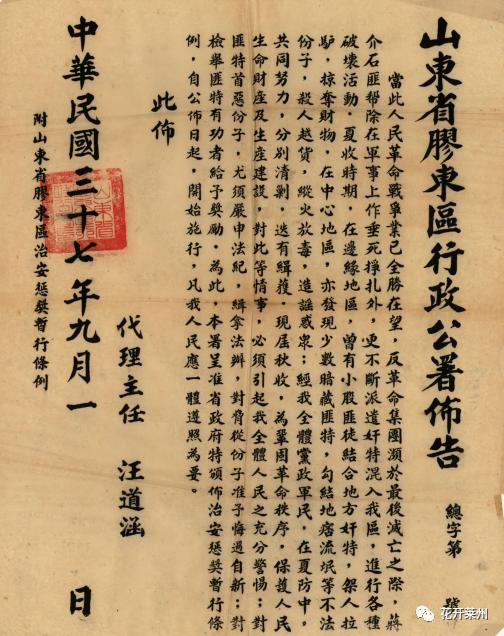 山東省膠東區行政公署佈告
總字第　號
當此人民革命戰爭業已全勝在望，反革命集團瀕於最後滅亡之際，蔣
介石匪帮除在軍事上作垂死掙扎外，更不斷派遣奸特混入我區，進行各種
破壞活動，夏收時期，在邊緣地區，曾有小股匪徒結合地方奸特，架人拉
驢，掠奪財物，在中心地區，亦發現少數暗藏匪特，勾結地痞流氓等不法
份子，殺人越貨，縱火放毒，造謠惑衆；經我全體黨政軍民，在夏防中，
共同努力，分別清剿，迭有緝獲，現屆秋收，為鞏固革命秩序，保護人民
生命財產及生產建設，對此等情事，必須引起我全體人民之充分警惕；對
匪特首惡份子，尤須嚴申法紀，緝拿法辦，對脅從份子准予悔過自新；對
檢舉匪特有功者給予獎勵，為此，本署呈准省政府特頒佈治安懲獎暫行條
例，自公佈日起，開始施行，凡我人民應一體遵照為要。
此佈
代理主任　汪道涵
中華民國三十七年九月一　日
附山東省膠東區治安懲獎暫行條例
花开莱州